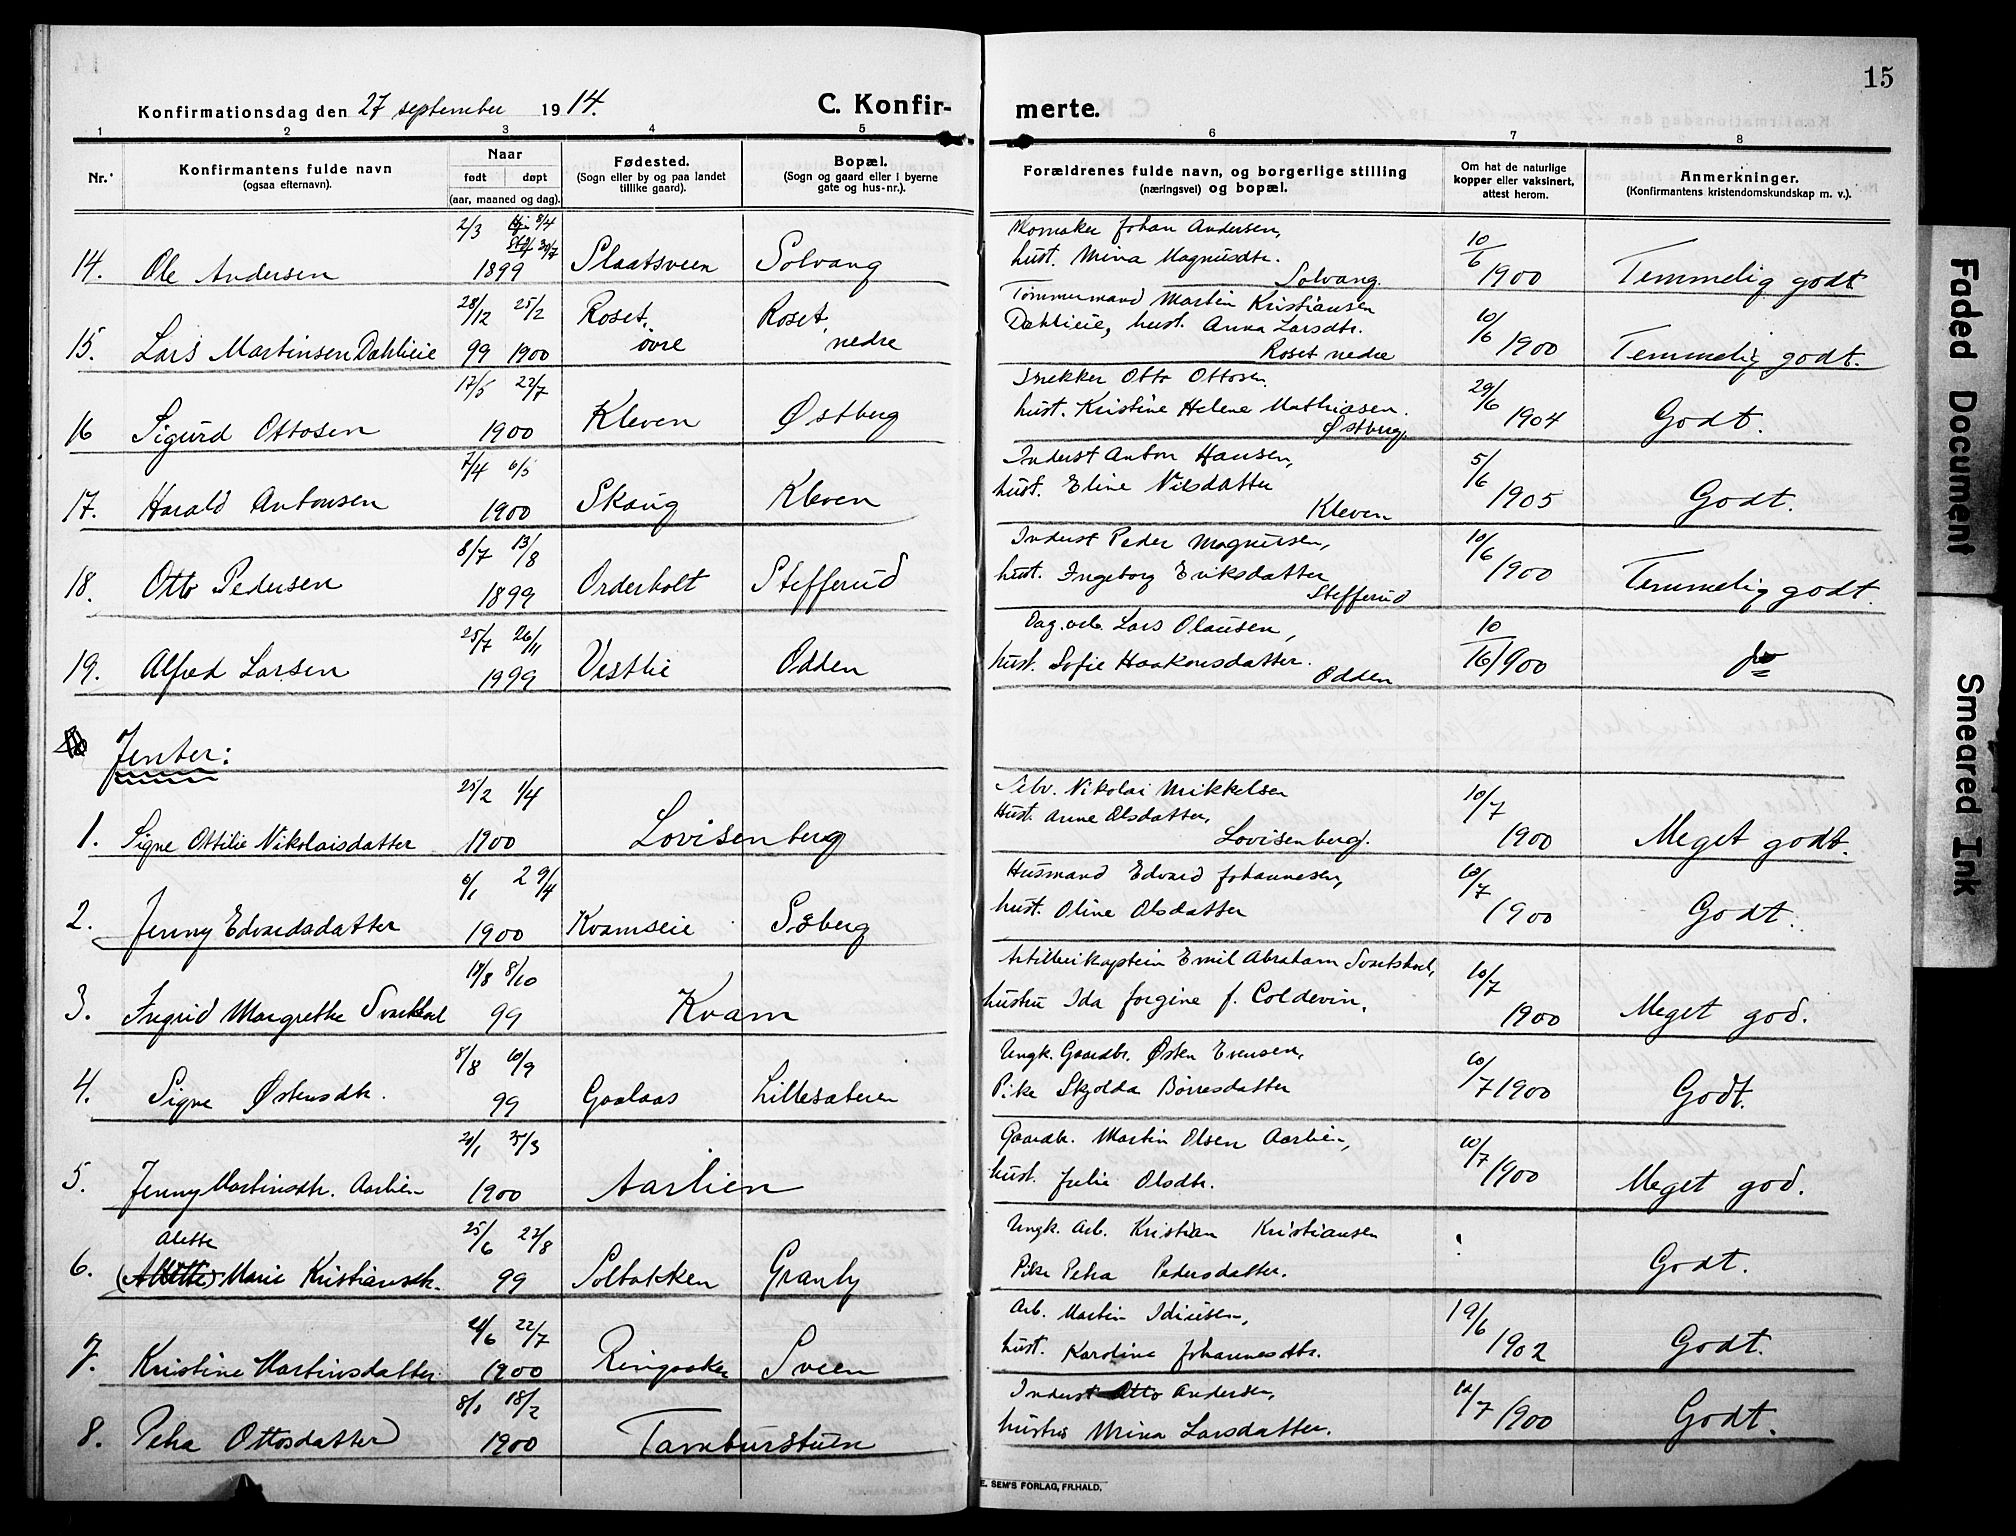 15
Konfirmationsdag den 27 september 1914.
C. Konfir-
merte.
1 2 3 4 5 6 7 8
Nr. Konfirmantens fulde navn (ogsaa efternavn).
Naar født døpt (aar, maaned og dag).
Fødested. (Sogn eller by og paa landet tillike gaard).
Bopæl. (Sogn og gaard eller i byerne gate og hus-nr.).
Forældrenes fulde navn, og borgerlige stilling (næringsvei) og bopæl.
Om hat de naturlige kopper eller vaksinert, attest herom.
Anmerkninger. (Konfirmantens kristendomskundskap m. v.).
2/3 8/4 30/7
14. Ole Andersen 1899 Slaatsveen Solvang
Skomaker Johan Andersen,
hust. Mina Magnusdtr.
Solvang.
10/6 1900 Temmelig godt
28/12 25/2
15. Lars Martinsen Dahlieie 99 1900 Roset øvre Roset nedre
Tømmermand Martin Kristiansen
Dahlieie, hust. Anna Larsdtr.
Roset nedre
10/6 1900 Temmelig godt.
17/5 22/7
16 Sigurd Ottosen 1900 Kleven Østberg
Snekker Otto Ottosen
hust. Kristine Helene Mathiasen.
Østberg.
29/6 1904 Godt.
7/4 6/5
17. Harald Antonsen 1900 Skaug Kleven
Inderst Anton Hansen,
hust. Eline Nilsdatter
Kleven
5/6 1905 Godt.
8/7 13/8
18. Otto Pedersen 1899 Orderholt Stefferud
Inderst Peder Magnussen,
hust. Ingeborg Eriksdatter
Stefferud
10/6 1900 Temmelig godt.
25/7 26/11
19. Alfred Larsen 1999 Vestlie Odden
Dag.arb. Lars Olausen,
hust. Sofie Haakonsdatter.
Odden
10/16 1900
Jenter:
25/2 1/4
1. Signe Ottilie Nikolaisdatter 1900 Lovisenberg
Selv. Nikolai Mikkelsen
Hust. Anne Olsdatter,
Lovisenberg.
10/7 1900 Meget godt.
6/1 29/4
2. Jenny Edvardsdatter 1900 Kvamseie Søberg
Husmand Edvard Johannesen,
hust. Oline Olsdatter
10/7 1900 Godt.
18/8 8/10
3. Ingrid Margrethe Svartskol 99 Kvam
Artillerikaptein Emil Abraham
hustru Ida Jorgine f. Coldevin.
10/7 1900 Meget god.
8/8 10/9
4. Signe Østensdtr. 99 Gaalaas Lillesæteren
Ungk. Gaardbr. Østen Evensen,
Pike Skjolda Børresdatter
10/7 1900 Godt.
20/1 25/3
5. Jenny Martinsdtr. Aarlien 1900 Aarlien
Gaardbr. Martin Olsen Aarlien,
hust. Julie Olsdtr.
10/7 1900 Meget god.
25/6 22/8
Alette
6. Marie Kristiansdtr. 99 Solbakken Granly
Ungk. Arb. Kristian Kristiansen
Pike Petra Pedersdatter.
Godt.
24/6 22/7
7. Kristine Martinsdatter. 1900 Ringsaker Sveen
Arb. Martin
hust. Karoline Johannesdtr.
19/6 1902 Godt.
8/1 18/2
8. Petra Ottosdatter 1900 Tamburstuen
Inderst Otto Andersen,
hustru Mina Larsdatter.
10/7 1900 Godt.
E. SEM'S FORLAG, FR.HALD.
Faded Document
Smeared Ink